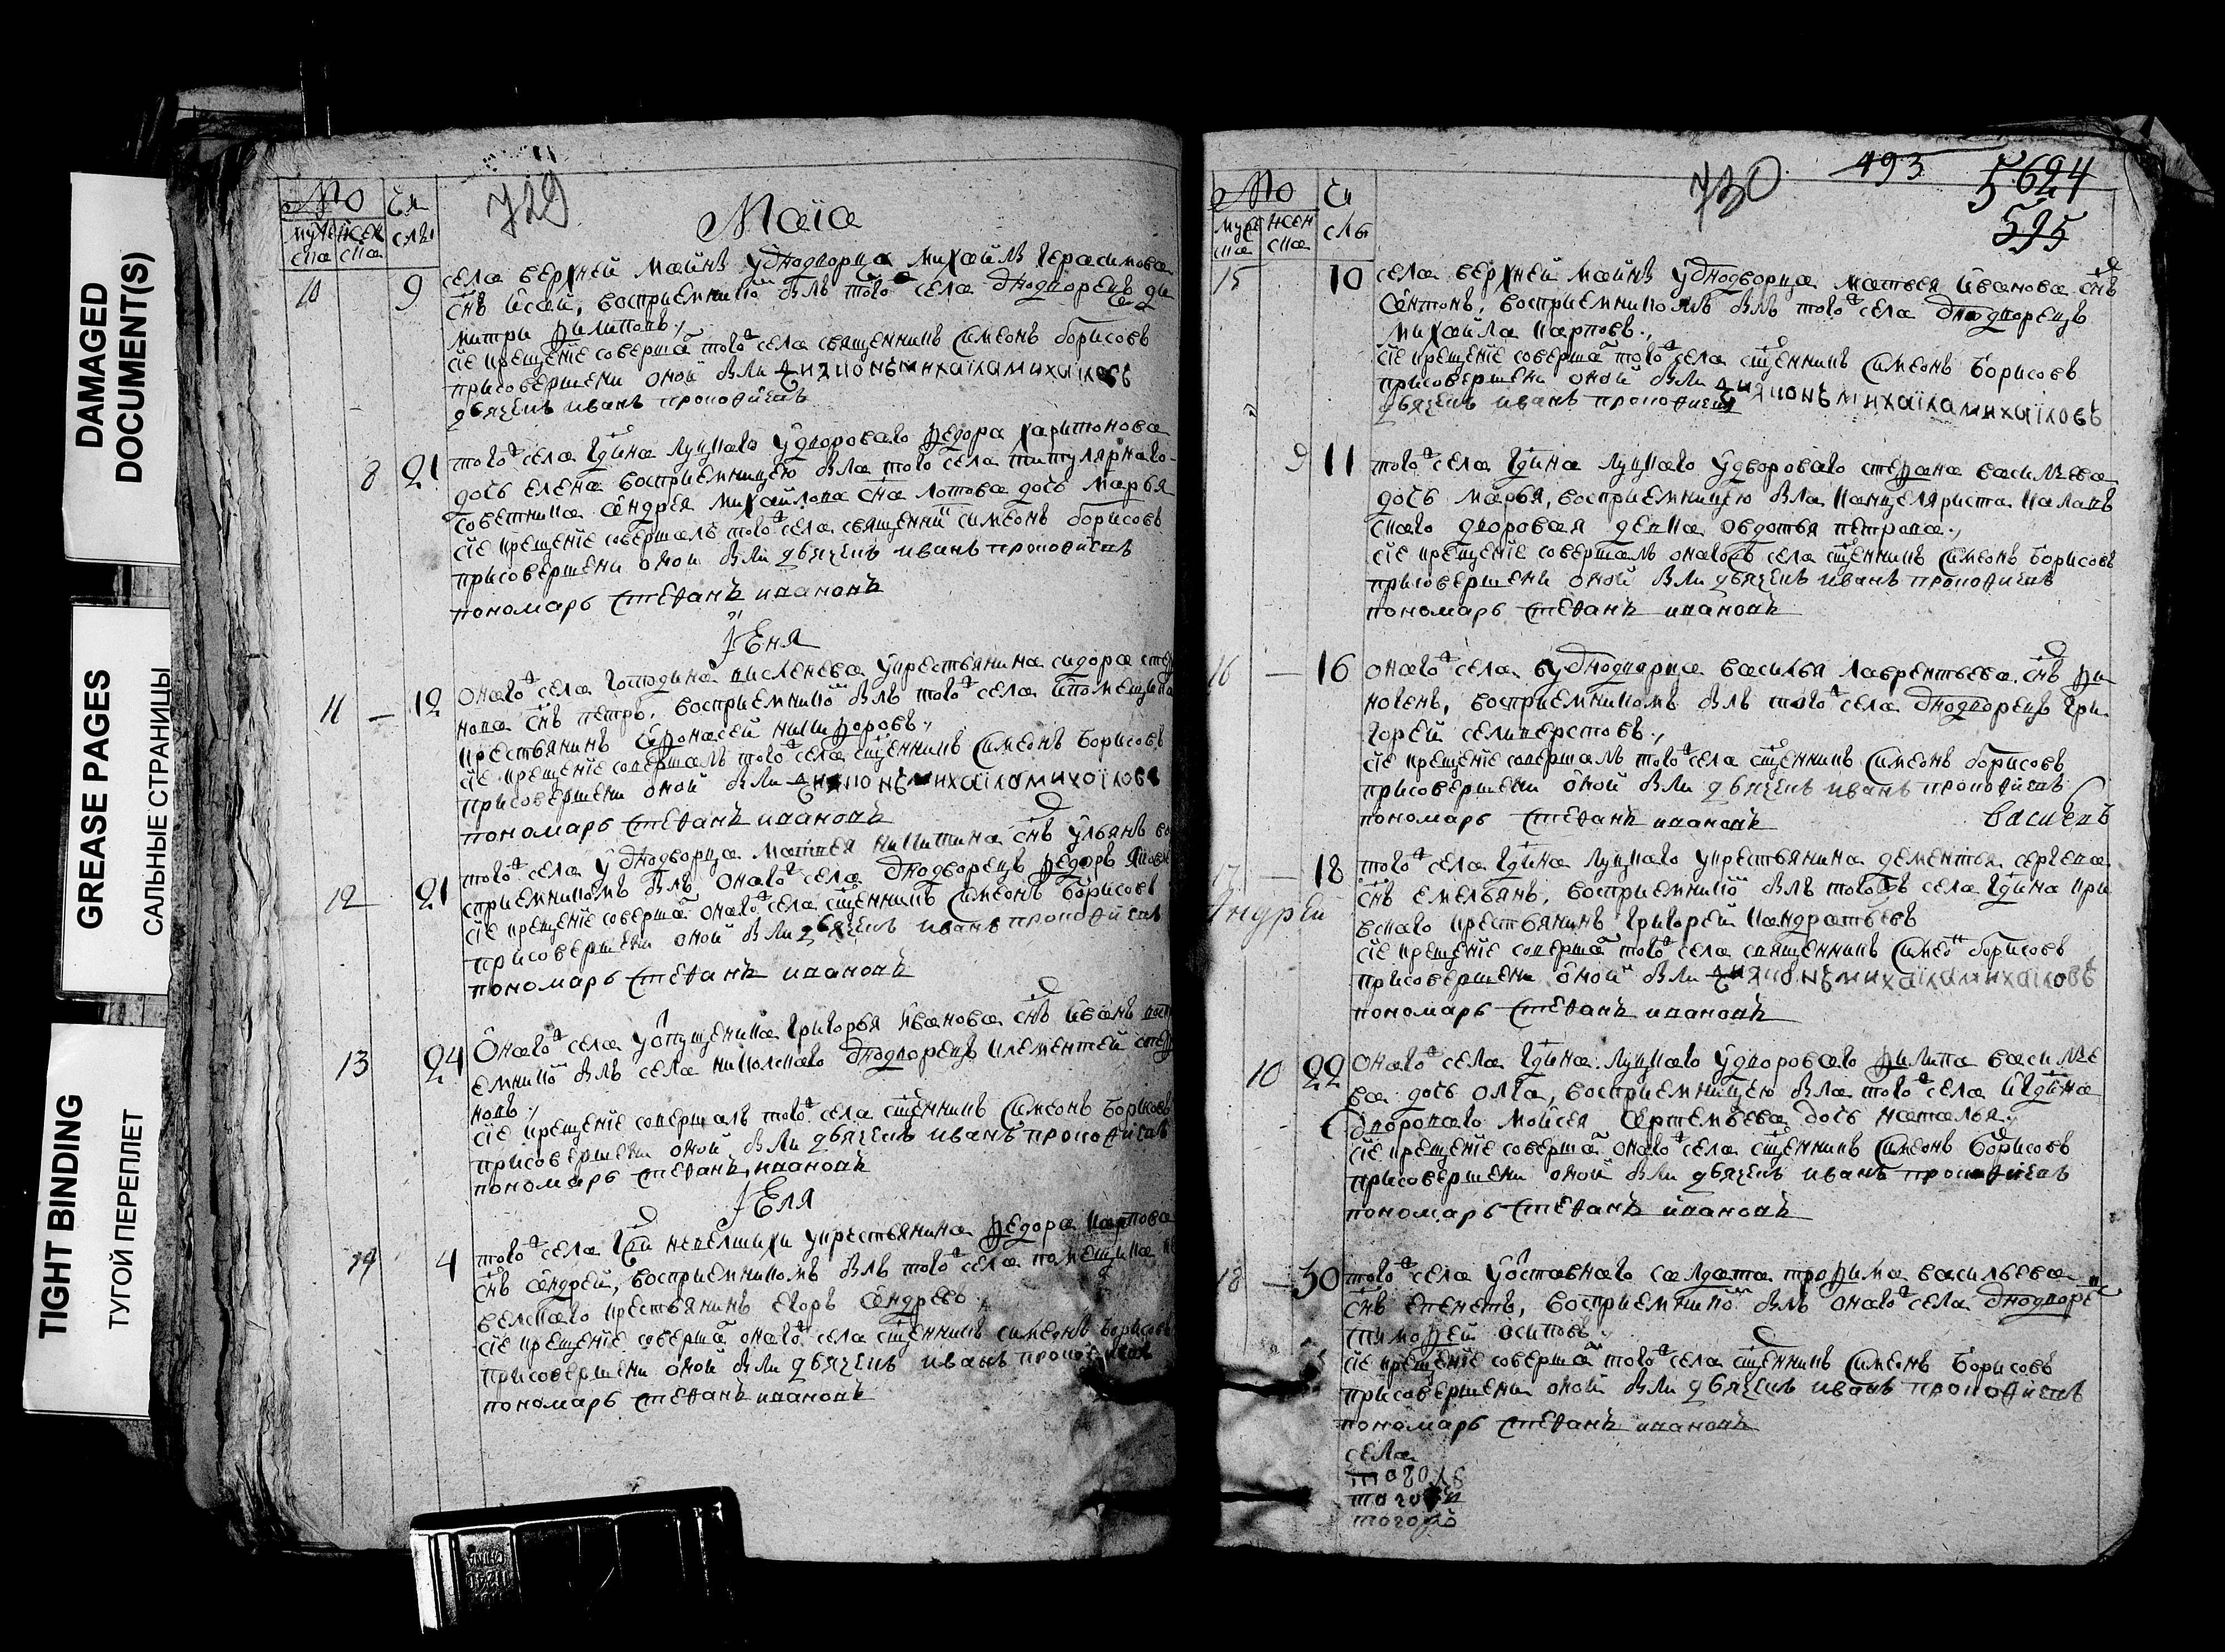 DAMAGED
DOCUMENT(S)
GREASE PAGES
САЛЬНЫЕ СТРАНИЦЫ
TIGHT BINDING
ТУГОЙ ПЕРЕПЛЕТ
729
№ чи
муже жен слы
ска ска
Маїа
10 9 села верхней майнѣ уднодворца михаилѣ герасимова
снъ исай, восприемнико былъ того села днодворецъ ди
митри филиповъ
сїе крещенїе соверша того села священникъ симеонъ борисовъ
присовершени оной были михаїла михаїловъ
дьячекъ иванъ прокофиевъ
8 21 того села гдина луцкаго удвороваго федора харитонова
дочь елена восприемницею была того села титулярнаго
советника андрея михайлова сна лотова дочь марья
сїе крещенїе совершалъ того села священни симеонъ борисовъ
присовершени оной были дьячекъ иванъ прокофиевъ
пономарь стефанъ ивановъ
Іеня
11 12 онаго села господина укрестьянина сидора
нова снъ петръ, восприемнико былъ того села
крестьянинъ афонасей никифоровъ
сїе крещенїе совершалъ того села сщенникъ симеонъ борисовъ
присовершени оной были михаїла михаїловъ
пономарь стефанъ ивановъ
12 21 того села уднодворца матвея никитина снъ ульянъ во
сприемникомъ былъ онаго села днодворецъ федоръ
сїе крещенїе соверша онаго села сщенникъ симеонъ борисовъ
присовершени оной были дьячекъ иванъ прокофиевъ
пономарь стефанъ ивановъ
13 24 онаго села григорья иванова снъ иванъ
емнико былъ села никольскаго днодворецъ клементей
новъ
сїе крещенїе совершалъ того села сщенникъ симеонъ борисовъ
присовершени оной были дьячекъ иванъ прокофиевъ
пономарь стефанъ ивановъ
Іеля
14 4 того села укрестьянина федора карпова
снъ андрей, восприемникомъ былъ того села помещика
крестьянинъ егоръ андреев
сїе крещенїе соверша онаго села сщенникъ симеонъ борисовъ
присовершени оной были дьячекъ иванъ
пономарь стефанъ ивановъ
730 493 5624
595
№ чи
муже жен слы
ска ска
15 10 села верхней майнѣ уднодворца матвея иванова снъ
антонъ, восприемникомъ былъ того села днодворецъ
михайла карповъ
сїе крещенїе соверша того села сщенникъ симеонъ борисовъ
присовершени оной были михаїла михаїловъ
дьячекъ иванъ прокофиев
9 11 того села гдина луцкаго удвороваго стефана васильева
дочь марья, восприемницею была канцеляриста
скаго дворовая девка овдотья петрова
сїе крещенїе совершалъ онагожъ села сщенникъ симеонъ борисовъ
присовершени оной были дьячекъ иванъ прокофиевъ
пономарь стефанъ ивановъ
16 16 онаго села уднодворца василья лаврентьева снъ фи
ногенъ, восприемникомъ былъ того села днодворецъ гри
горей селиверстовъ
сїе крещенїе совершалъ того села сщенникъ симеонъ борисовъ
присовершени оной были дьячекъ иванъ прокофиевъ
пономарь стефанъ ивановъ
17 18 того села гдина луцкаго укрестьянина дементья сергева
снъ емельянъ, восприемнико былъ тогожъ села гдина кри
вскаго крестьянинъ григорей кандратьевъ
Андрей
сїе крещенїе соверша того села священникъ симео борисовъ
присовершени оной были михаїла михаїловъ
пономарь стефанъ ивановъ
10 22 онаго села гдина луцкаго удвороваго филипа василье
ва дочь олга, восприемницею была того села гдина
двороваго моисея артемьева дочь наталья
сїе крещенїе соверша онаго села сщенникъ симеонъ борисовъ
присовершени оной были дьячекъ иванъ прокофиевъ
пономарь стефанъ ивановъ
18 30 того села уотставнаго салдата трофима васильева
снъ епенетъ, восприемнико былъ онаго села днодворе
тимофей осиповъ
сїе крещенїе соверша того села сщенникъ симеонъ борисовъ
присовершени оной были дьячекъ иванъ прокофиевъ
пономарь стефанъ ивановъ
села